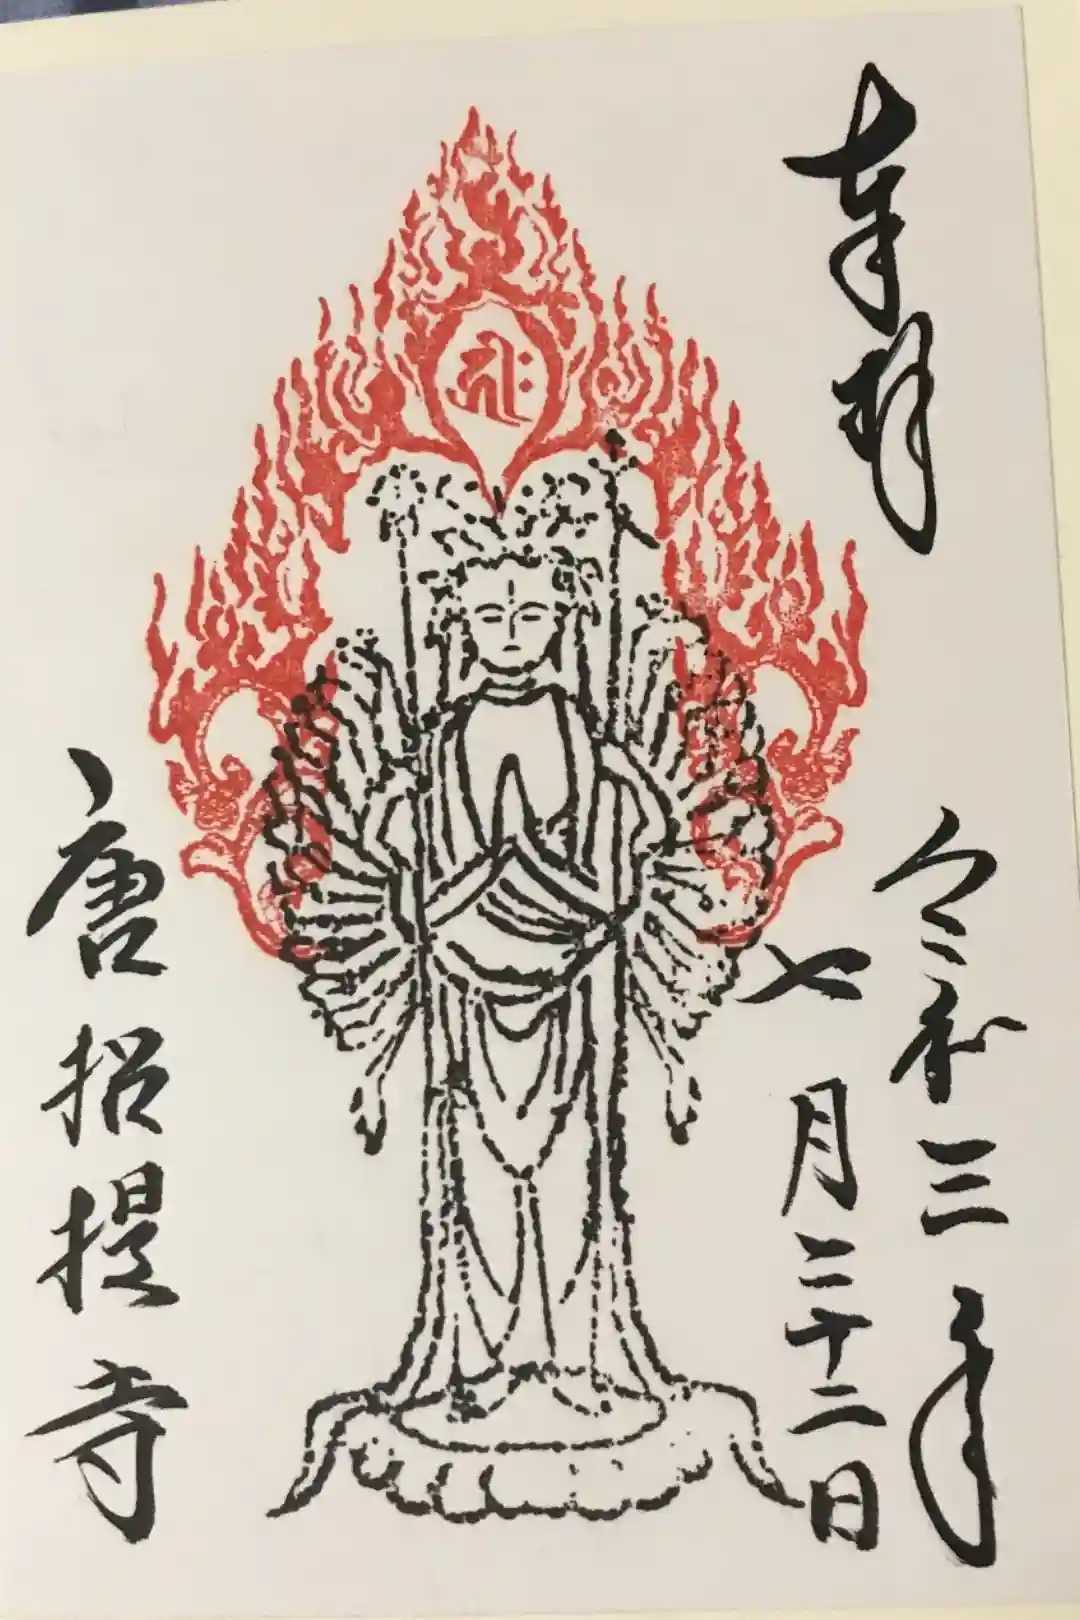 奉拝
令和三年
七月二十二日
𑖮𑖿𑖨𑖱𑖾
唐招提寺